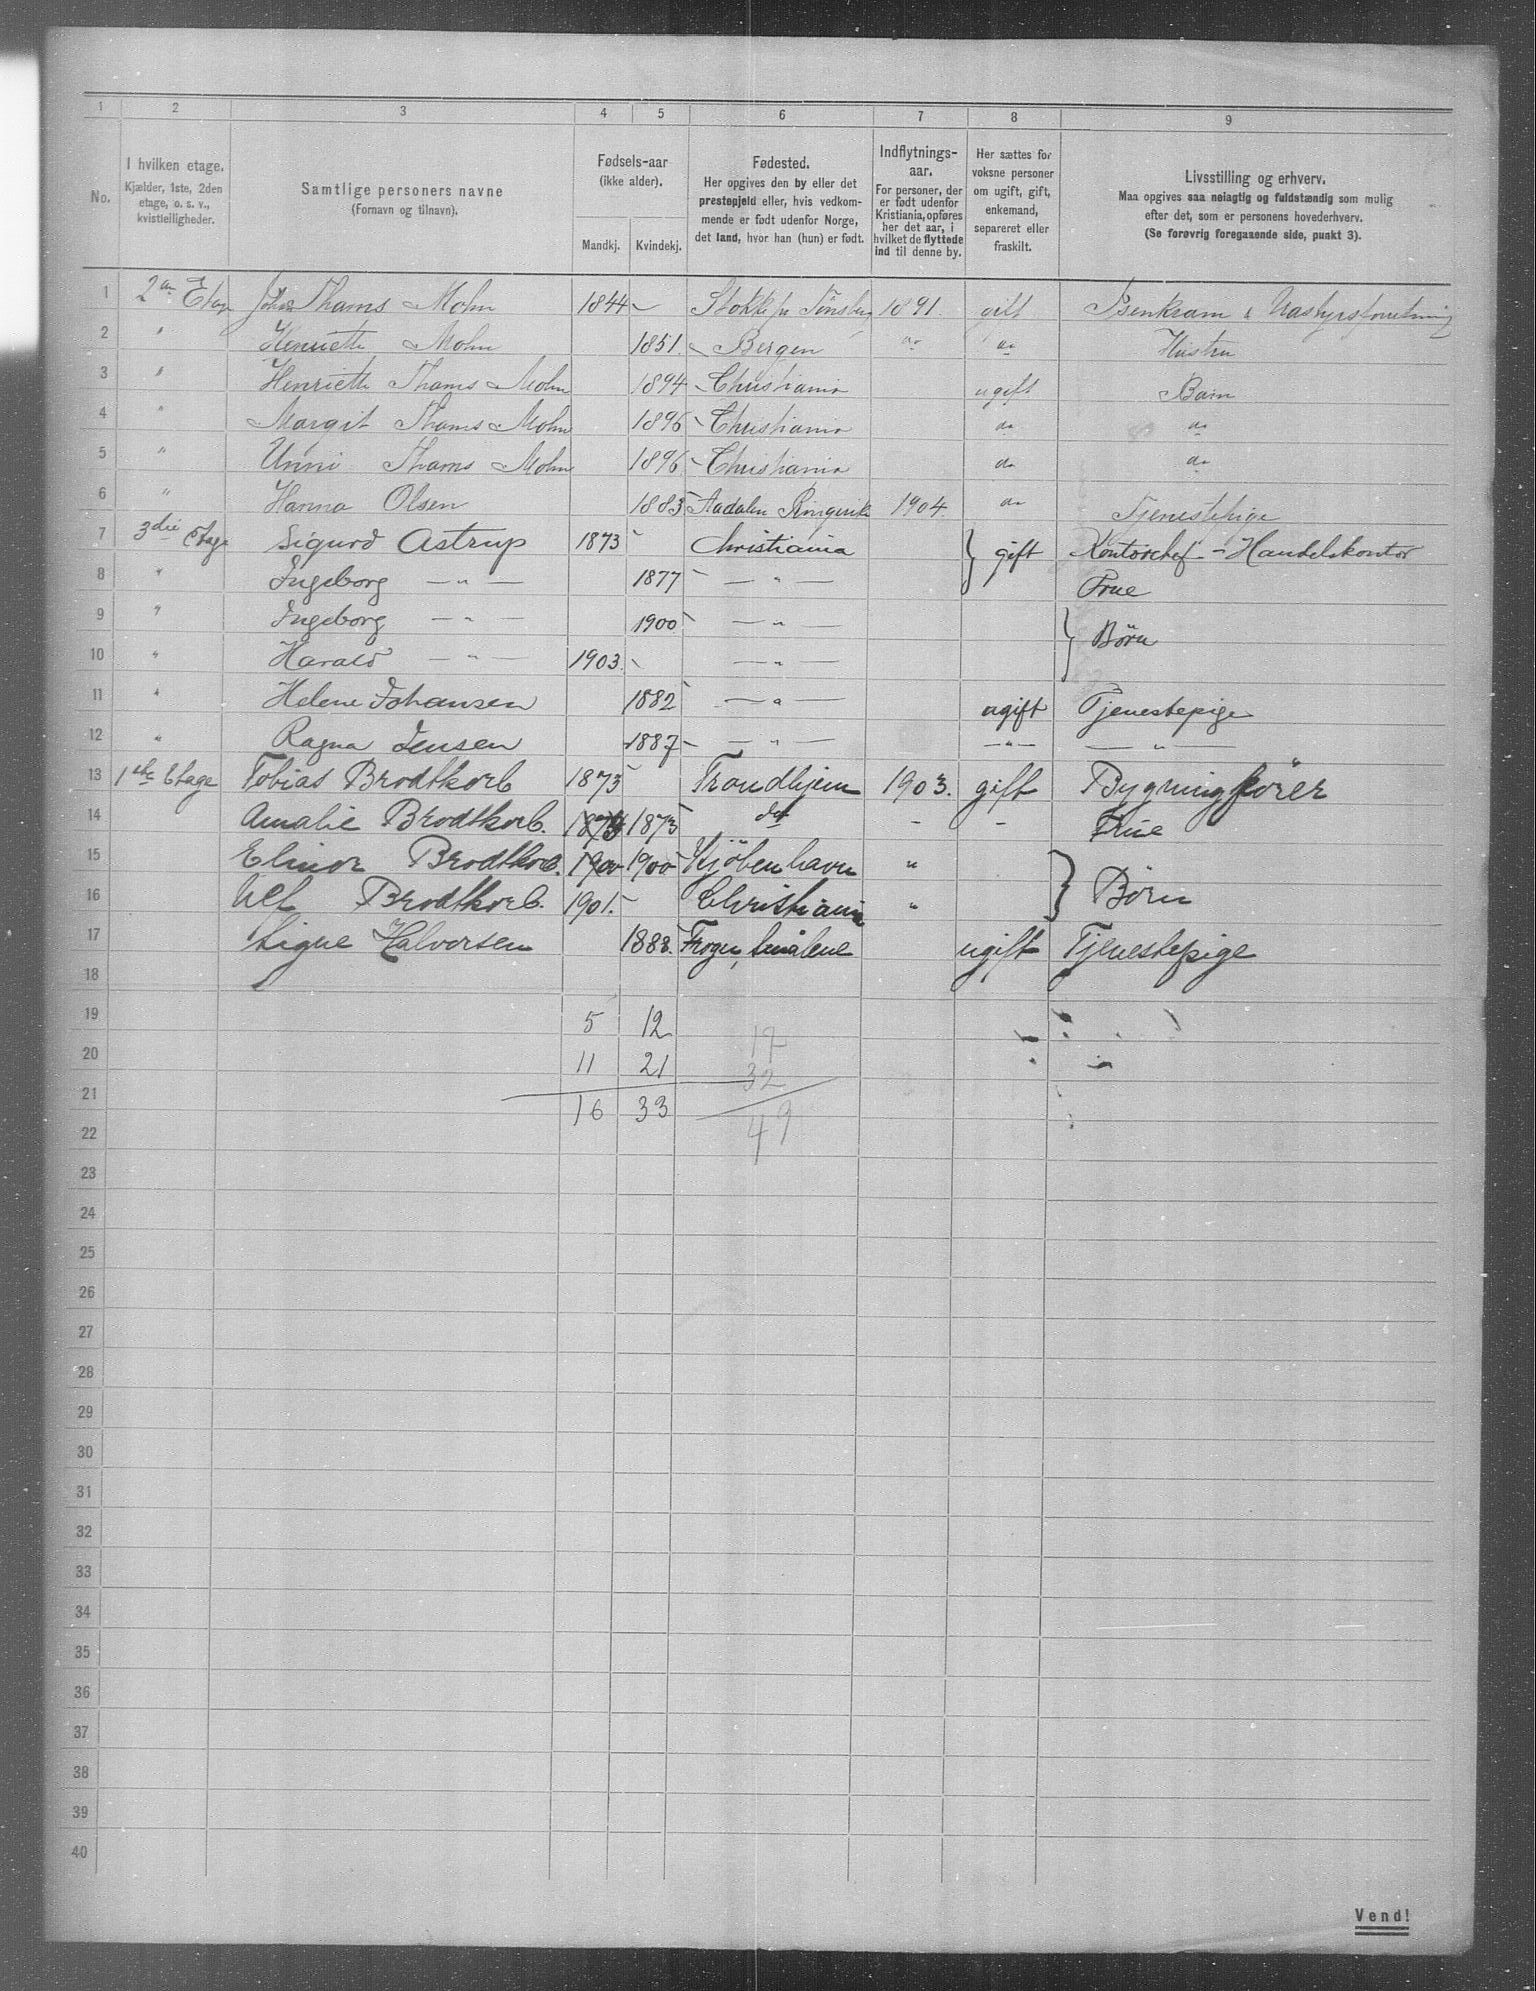 1 2 3 4 5 6 7 8 9
No.
I hvilken etage.
Kjælder, 1ste, 2den
etage, o. s. v.,
kvistleiligheder.
Samtlige personers navne
(Fornavn og tilnavn).
Fødsels-aar
(ikke alder).
Mandkj. Kvindekj.
Fødested.
Her opgives den by eller det
prestegjeld eller, hvis vedkom-
mende er født udenfor Norge,
det land, hvor han (hun) er født.
Indflytnings-
aar.
For personer, der
er født udenfor
Kristiania, opføres
her det aar, i
hvilket de flyttede
ind til denne by.
Her sættes for
voksne personer
om ugift, gift,
enkemand,
separeret eller
fraskilt.
Livsstilling og erhverv.
Maa opgives saa nøiagtig og fuldstændig som mulig
efter det, som er personens hovederhverv.
(Se forøvrig foregaaende side, punkt 3).
1 2en Etage Thams Mohn 1844 - Stokke pr Tønsberg 1891. gift Isenkram & Udstyrsforretning
2 " Henriette Mohn 1851. - Bergen do do Hustru
3 " Henriette Thams Mohn 1894 - Christiania ugift Barn
4 " Margit Thams Mohn 1896 - Christiania do do
5 " Unni Thams Mohn 1896 - Christiania do do
6 " Hanna Olsen 1883 - Aadalen Ringerik 1904. do Tjenestepige
7 3die Etage Sigurd Astrup 1873 - Christiania } gift Kontorchef - Handelskontor
8 " Ingeborg — " — 1877 - — " — Frue
9 " Ingeborg — " — 1900 - — " — } Børn
10 " Harald — " — 1903. - — " —
11 " Helene Johansen 1882 - — " — ugift Tjenestepige
12 " Ragna Jensen 1887 - — " — — " — — " —
13 1ste Etage Tobias Brodtkorb 1873 - Trondhjem 1903. gift Bygningfører
14 Amalie Brodtkorb. 1873 do - - Frue
15 Elinor Brodtkorb. 1900 1900 Kjöbenhavn " } Börn
16 Ulf Brodtkorb. 1901. - Christiania "
17 Signe Halvorsen 1888. Frogn, Smålene ugift Tjenestepige
18
19 5 12 17
20 11 21 32
21 16 33 49
22
23
24
25
26
27
28
29
30
31
32
33
34
35
36
37
38
39
40
Vend!